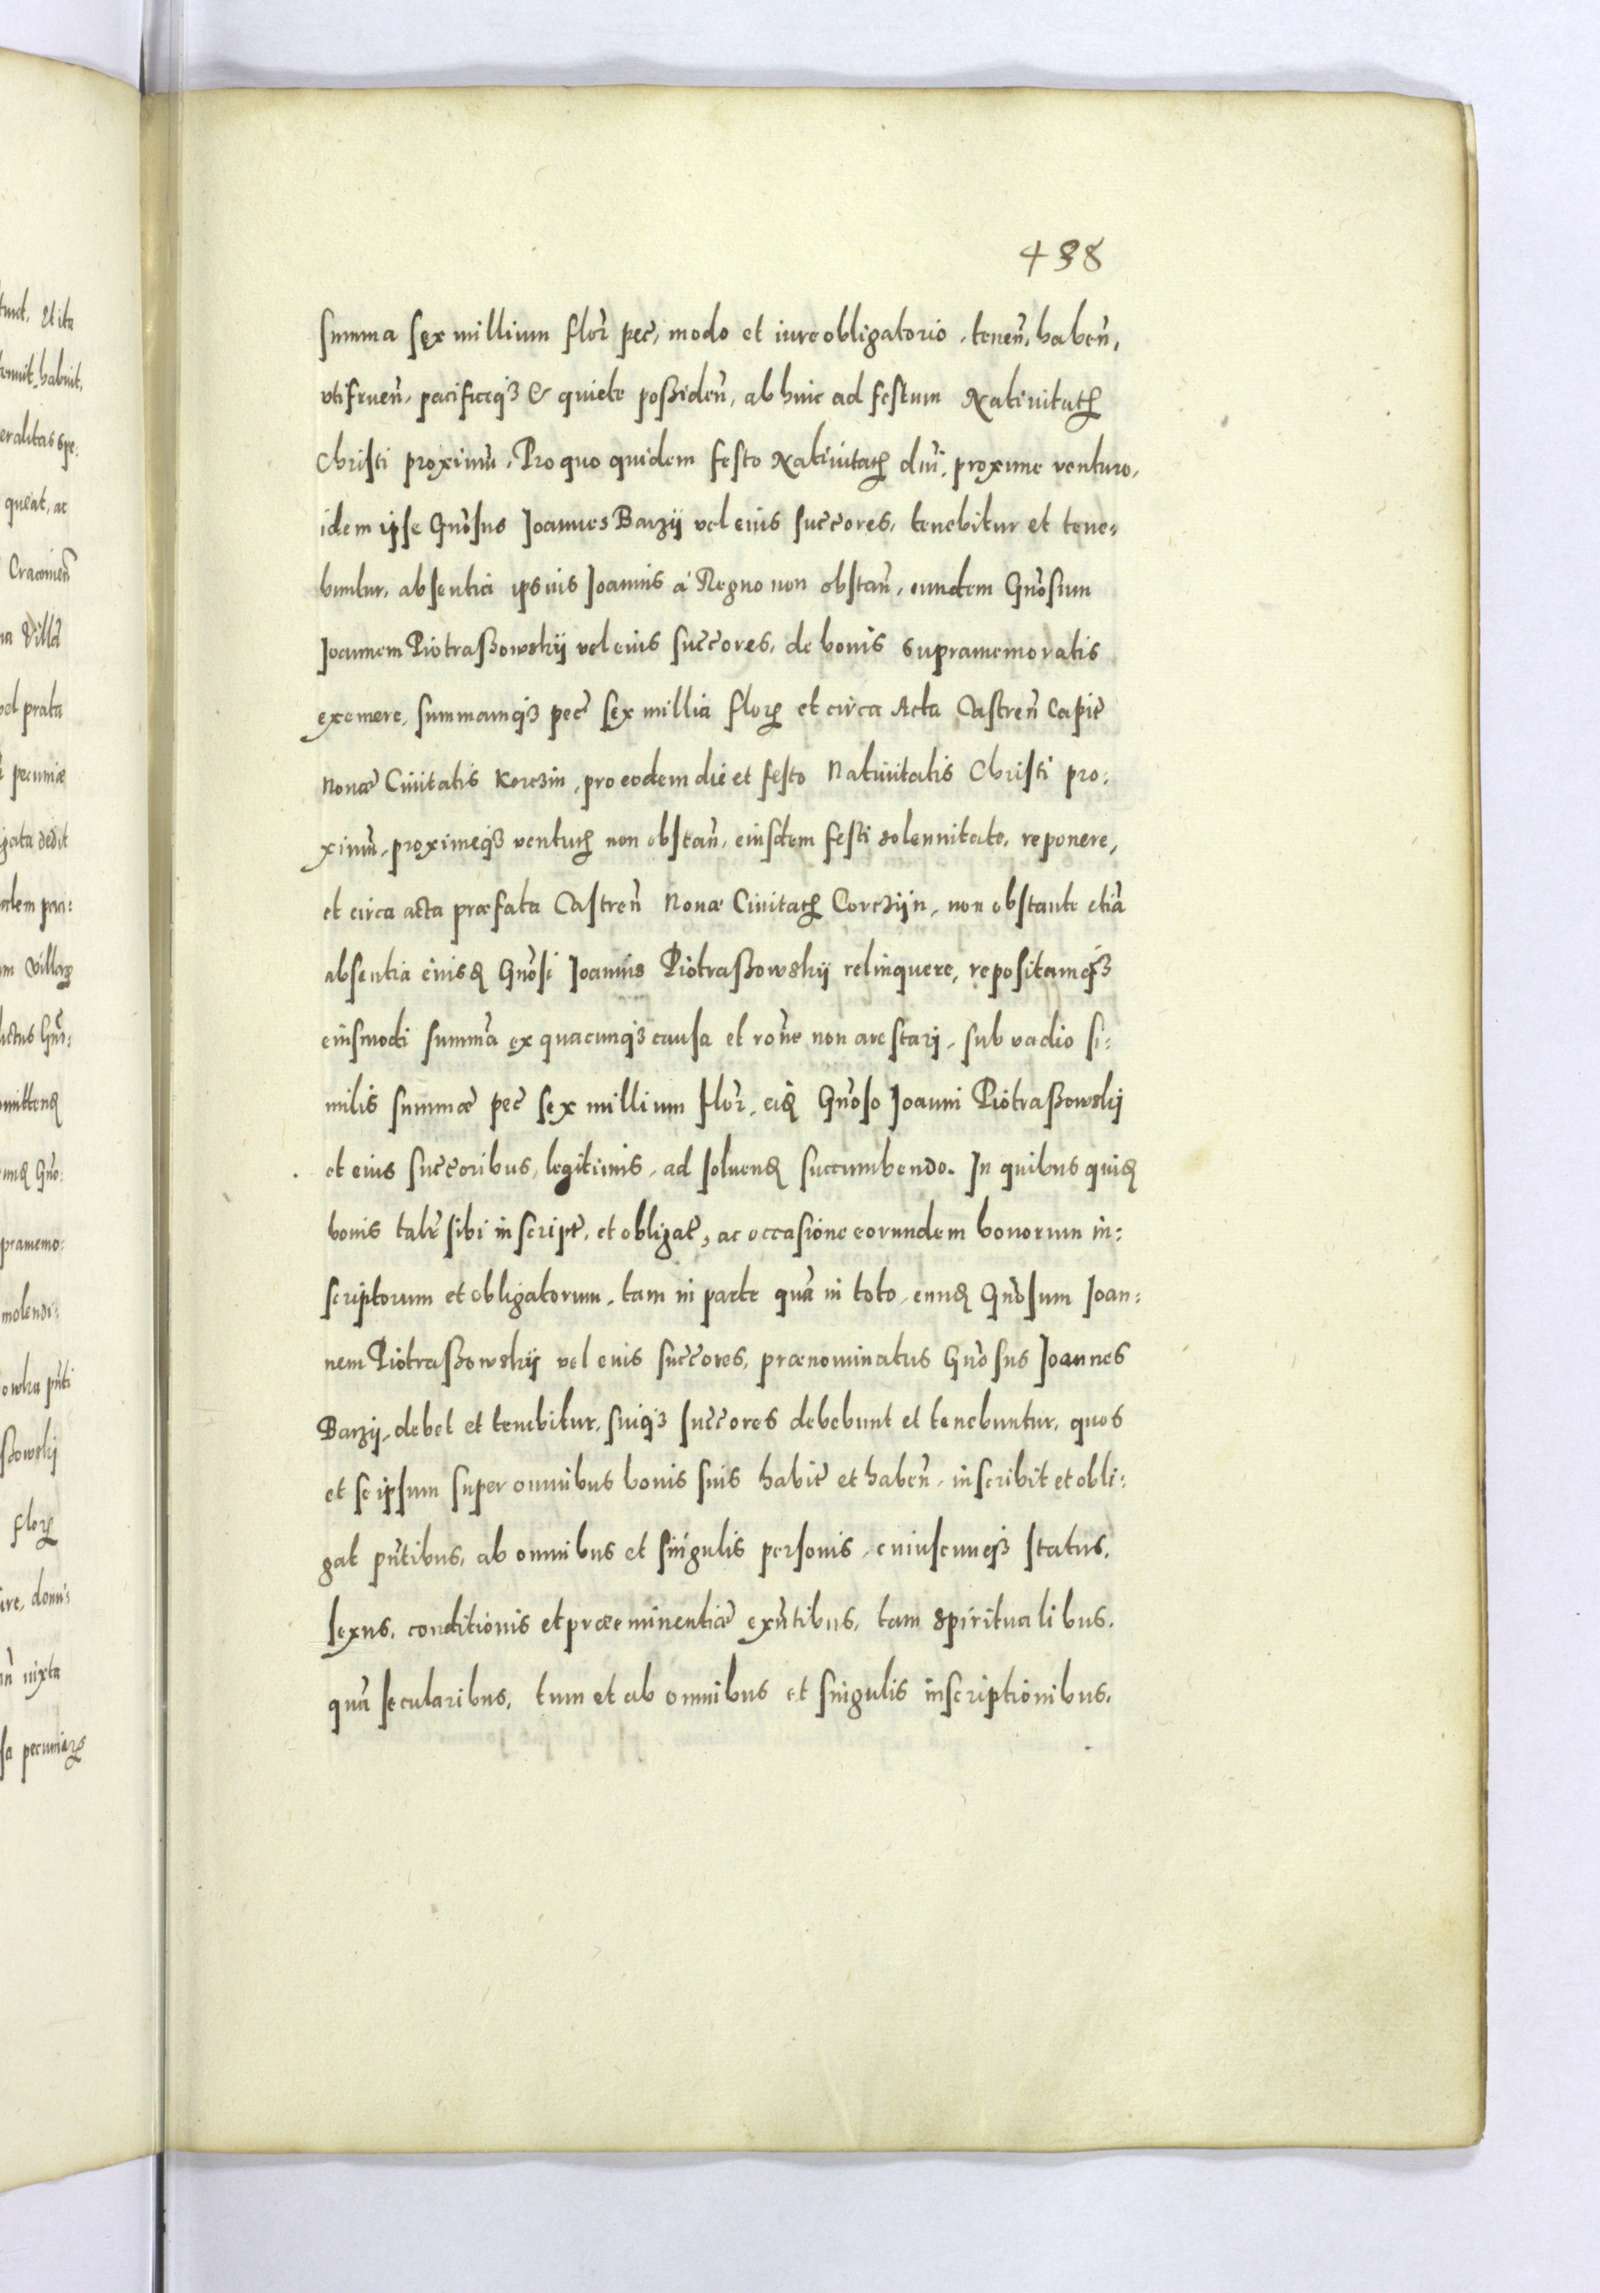 438
summa sex millium florꝛ pec̃, modo et iure obligatorio, tenen̄, haben̄,
vtifruen̄, pacificeqȝ & quiete possiden̄, ab huic ad festum Natiuitatꝭ
Christi proximū, Pro quo quidem festo Natiuitatꝭ dn̄i, proxime venturo,
idem ipse Gn̄osus Joannes Barzÿ vel eius succ̄ores, tenebitur et tene=
buntur, absentia ipsius Joannis á Regno non obstan̄, eundem Gn̄osum
Joannem Piotraßowskÿ vel eius succ̄ores, de bonis supramemoratis
exemere, summamqȝ pec̃ sex millia florꝝ et circa Acta Castren̄ Capit̄
Nouæ Ciuitatis Korczin, pro eodem die et festo Natiuitatis Christi pro=
ximū, proximeqȝ venturꝭ non obstan̄, eiusdem festi solennitate, reponere,
et circa acta præfata Castren̄ Nouæ Ciuitatꝭ Corczijn, non obstante etiā
absentia eiusꝗ Gn̄osi Joannis Piotraßowskÿ relinquere, repositamqȝ
eiusmodi summā ex quacunqȝ causa et ron̄e non arestarj, sub vadio si=
milis summæ pec̃ sex millium florꝛ, eiꝗ Gn̄oso Joanni Piotraßowskj
et eius succ̄oribus, legitimis, ad soluenꝗ succumbendo. In quibus quiꝗ
bonis talit̄ sibi inscript̄, et obligat̄, ac occasione eorundem bonorum in=
scriptorum et obligatorum, tam in parte quā in toto, eunꝗ Gn̄osum Joan=
nem Piotraßowskÿ vel euis succ̄ores, prænominatus Gn̄osus Joannes
Barzÿ, debet et tenebitur, suiqȝ succ̄ores debebunt et tenebuntur, quos
et se ipsum super omnibus bonis suis habit̄ et haben̄, inscribit et obli=
gat pn̄tibus, ab omnibus et singulis personis, cuiuscunqȝ status,
sexus, conditionis et præeminentiæ exn̄tibus, tam spiritualibus,
quā secularibus, tum et ab omnibus et singulis inscriptionibus,